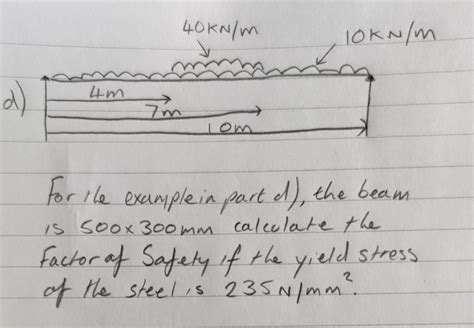 40KN/m
10KN/m
d)
4m
7m
10m
For the example in part d), the beam
is 500x300mm calculate the
Factor of Safety if the yield stress
of the steel is 235N/mm².